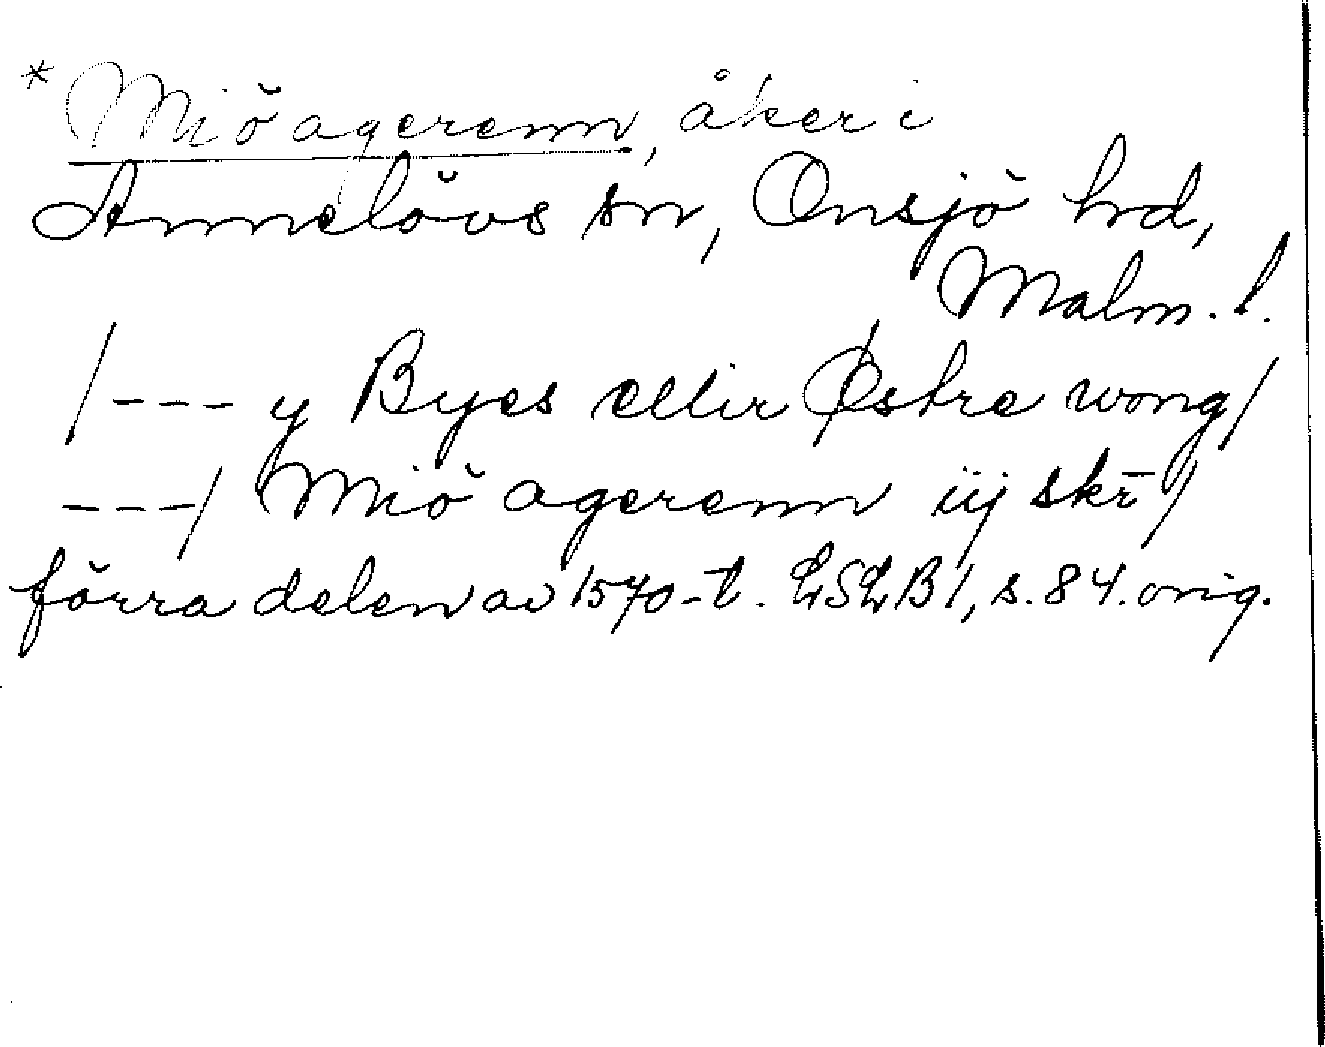 * Miö agerenn, åker i
Annelövs sn, Onsjö hd,
Malm. l.
/--- y Byes ellir Østre wong/
---/ Miö agerenn iij skr̄/
förra delen av 1570-t. LSLB 1, s. 84. orig.